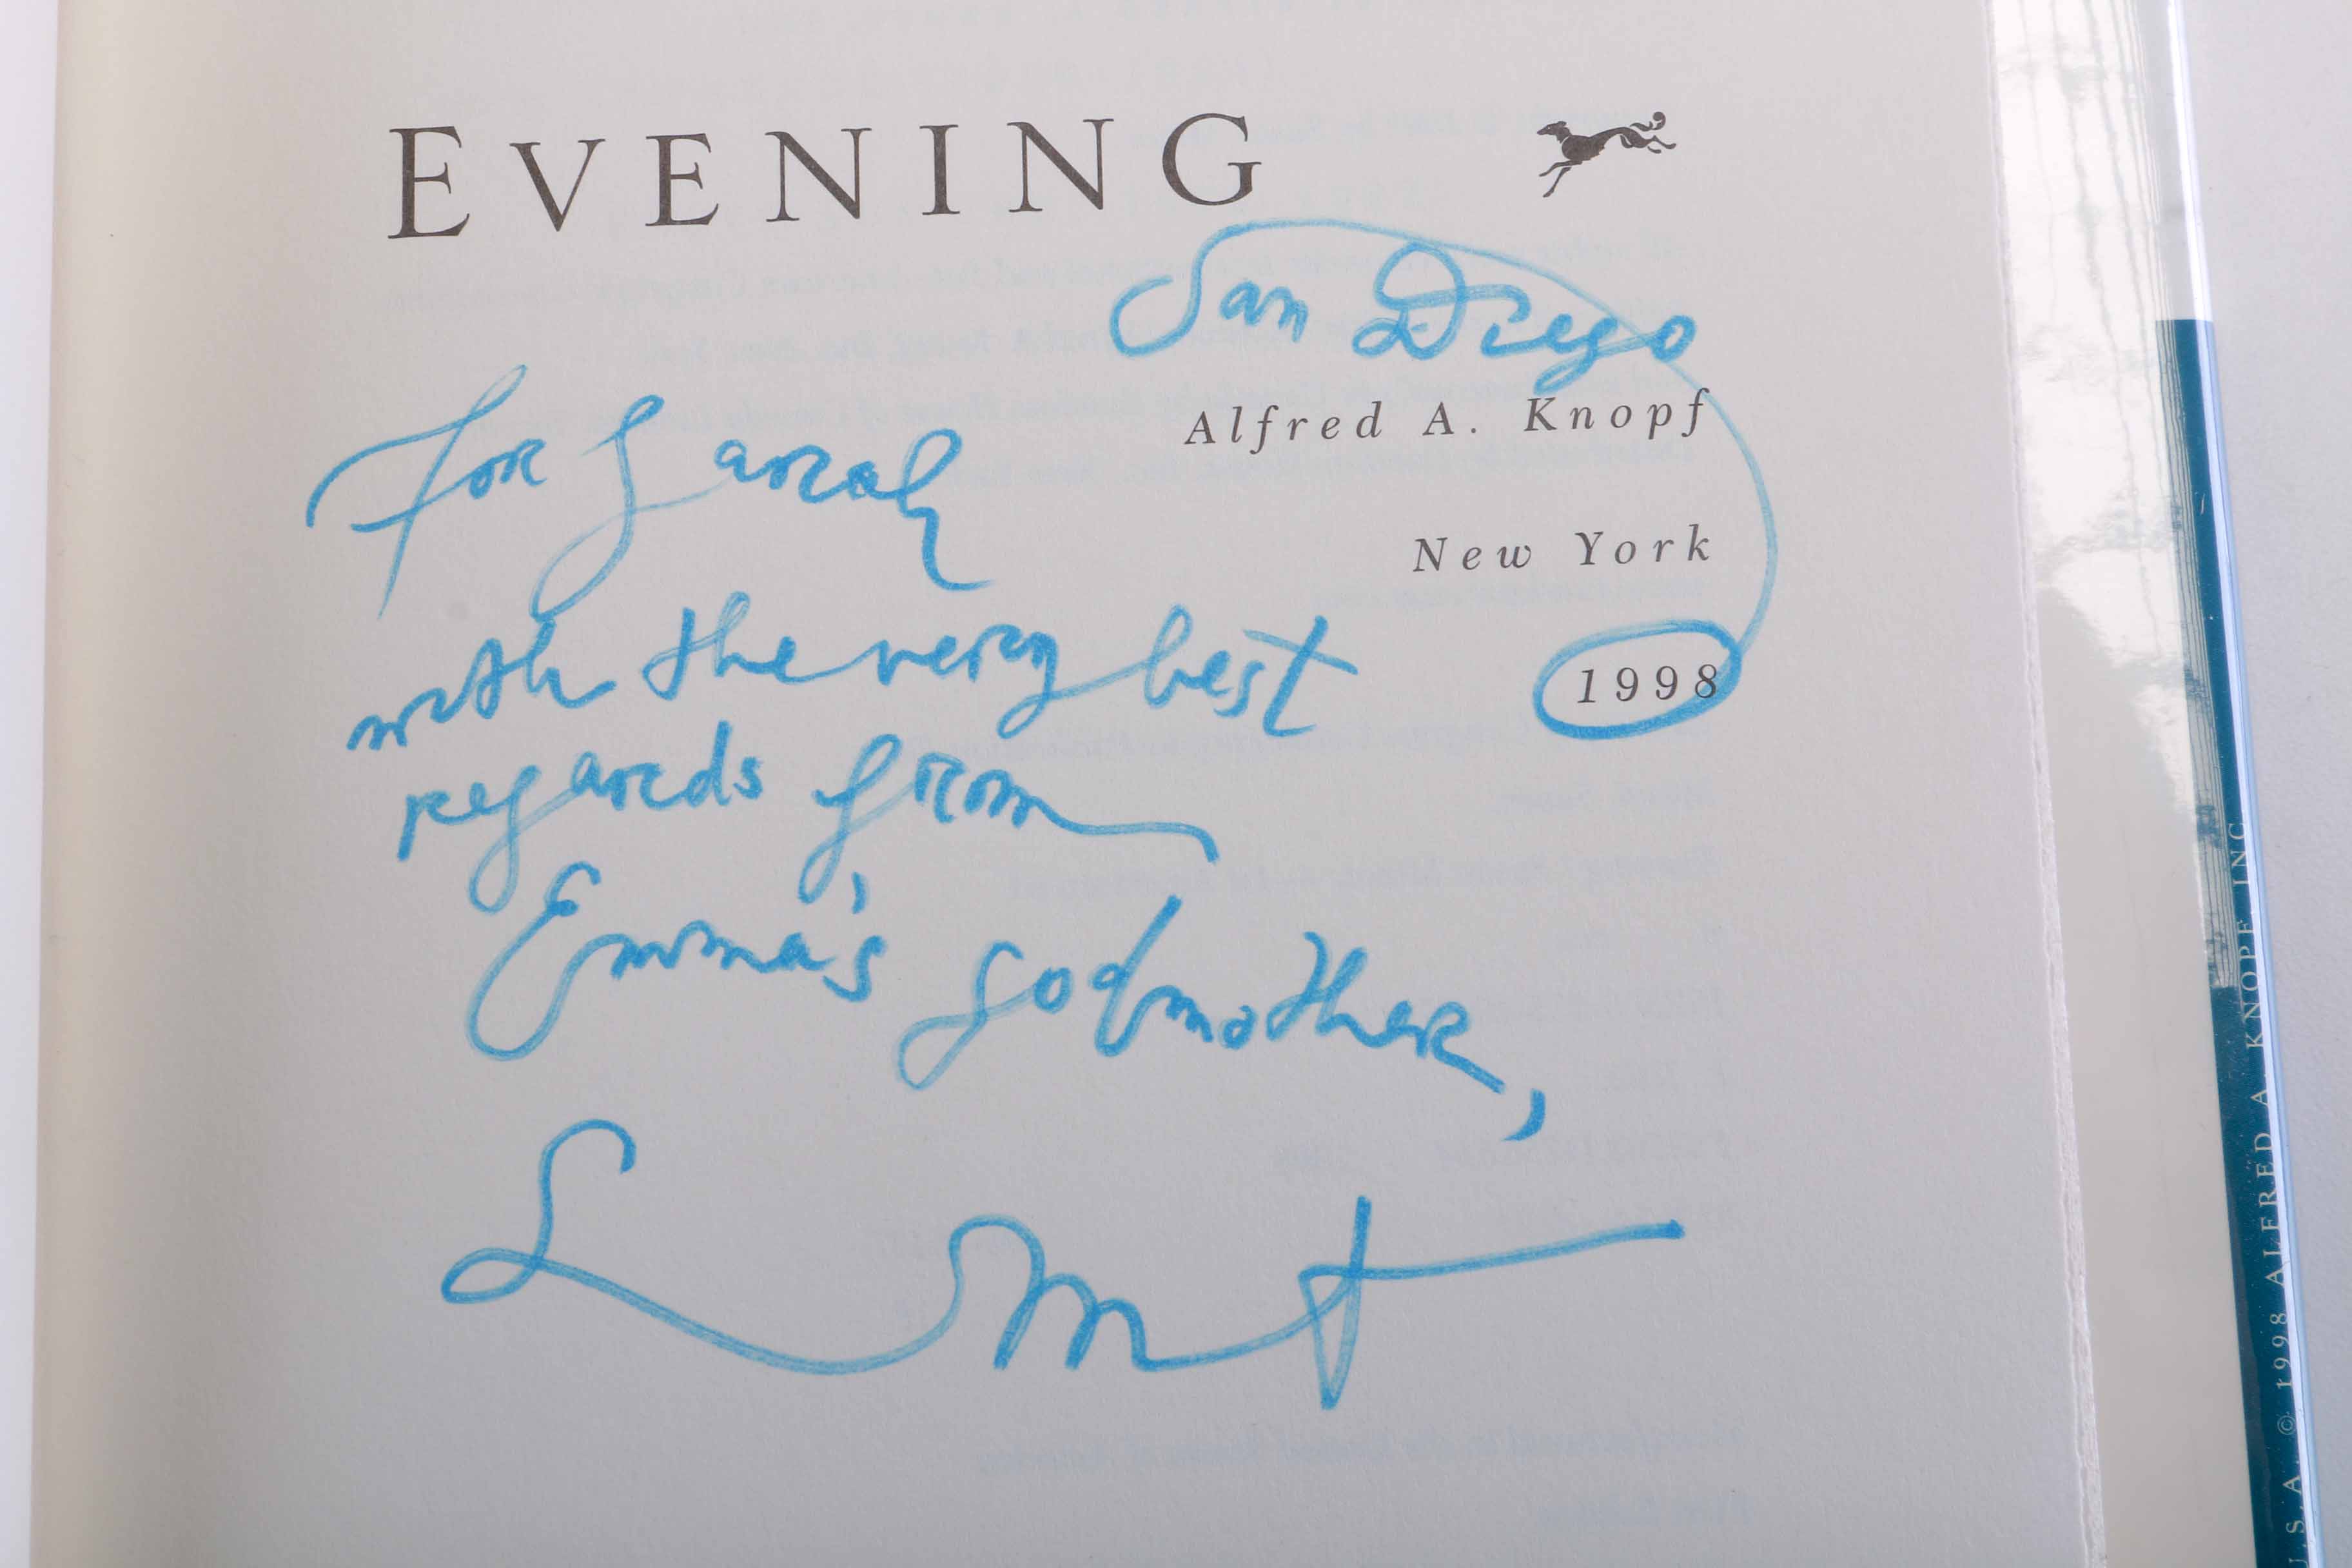 EVENING
San Diego
Alfred A. Knopf
For Sarah
New York
with the very best
1998
regards from
Emma's godmother,
.S.A. © 1998 ALFRED A. KNOPF, INC.